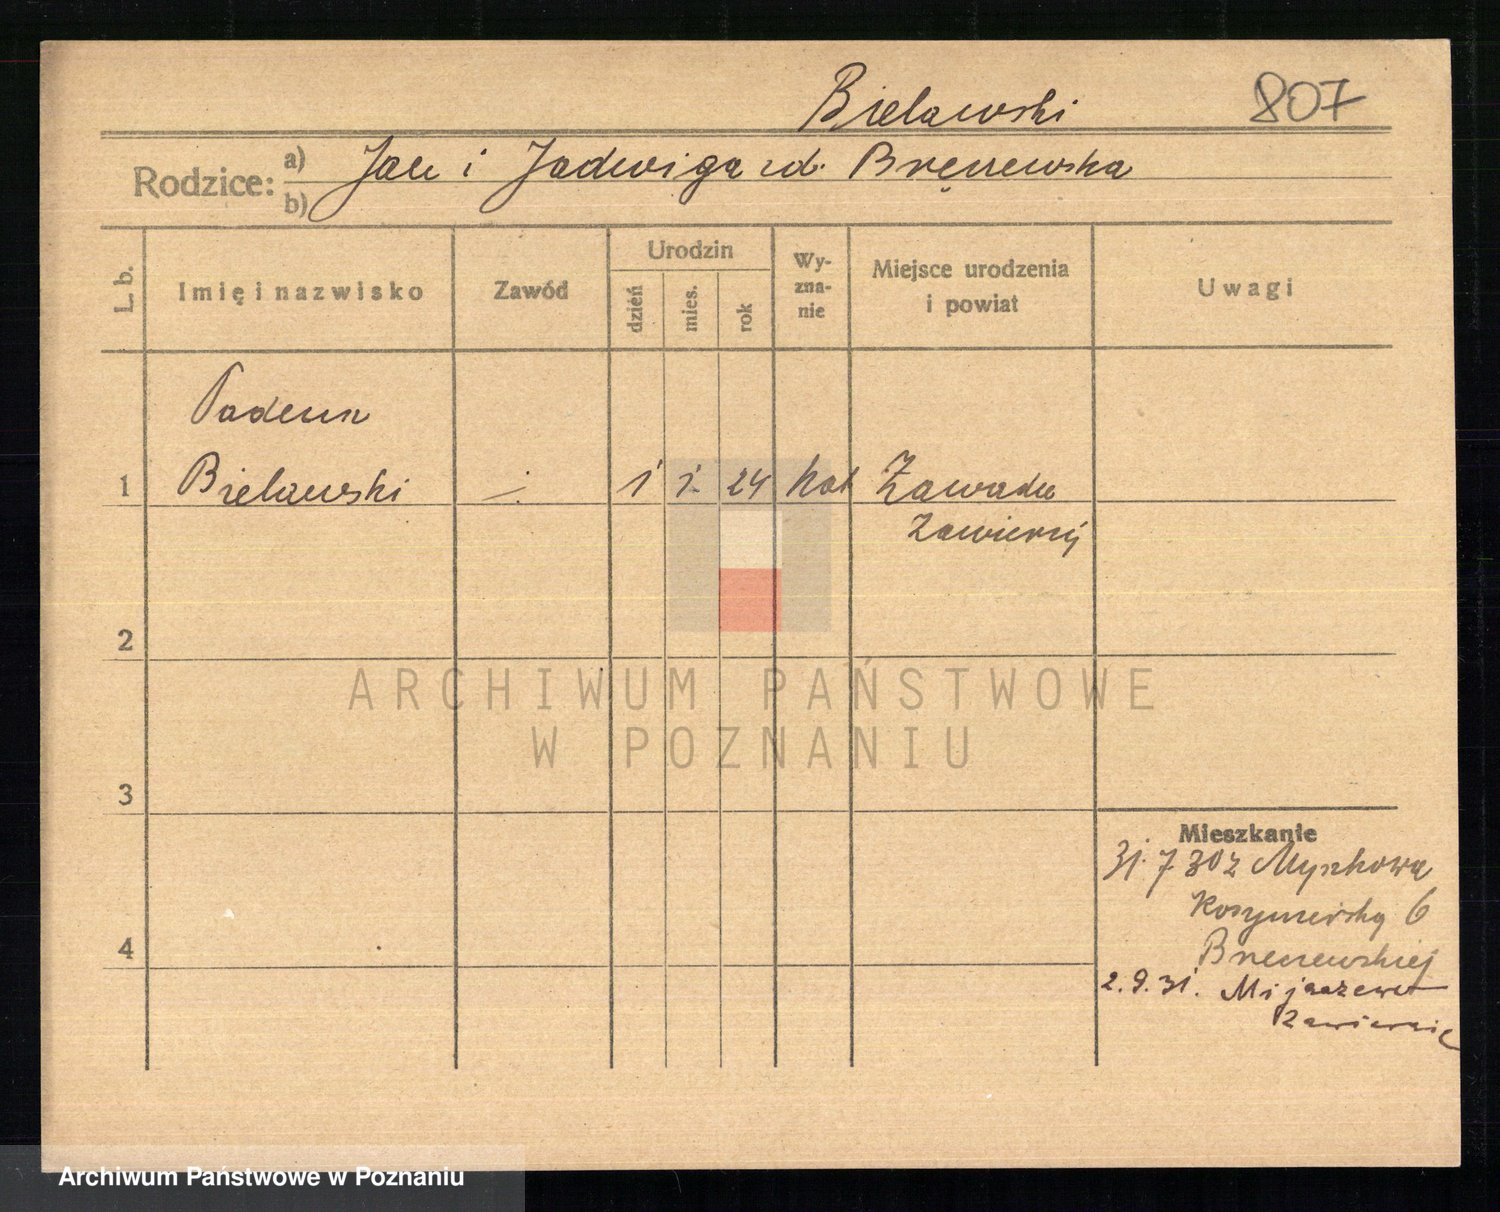 Bielawski 807
Rodzice: a) Jan i Jadwiga zd. Bręnewska
b)
L. b. Imię i nazwisko Zawód Urodzin dzień mies. rok Wyzna-nie Miejsce urodzenia i powiat Uwagi
Tadeusz
1 Bielawski 1 1. 24 kat Zawada
Zawiercij
2
ARCHIWUM PAŃSTWOWE
W POZNANIU
3
Mieszkanie
31.7 30 z Myszkowa
6
4 Brenewskiej
2.9.31.
Zawiercie
Archiwum Państwowe w Poznaniu